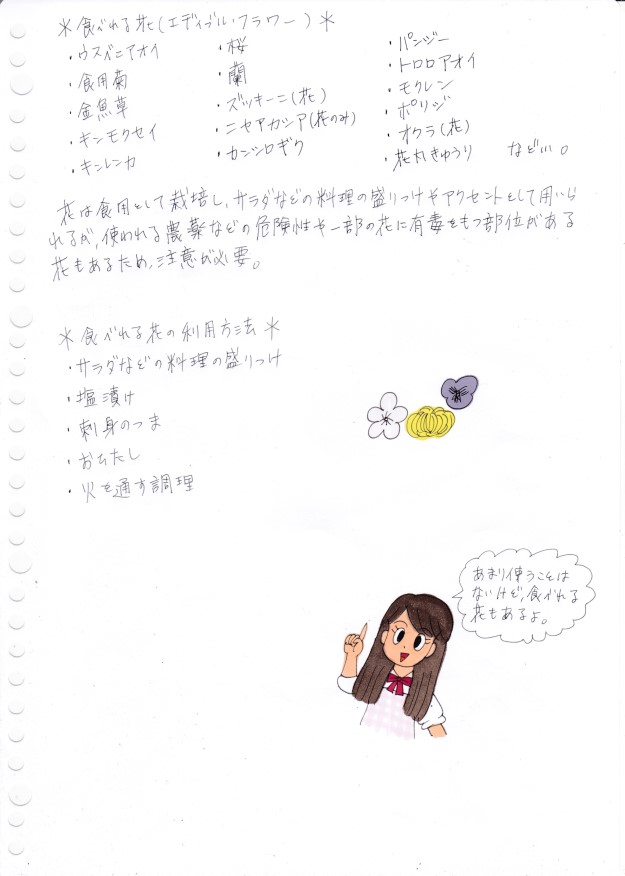 ＊食べれる花(エディブル・フラワー)＊
・ウスベニアオイ
・食用菊
・金魚草
・キンモクセイ
・キンレンカ
・桜
・蘭
・ズッキーニ(花)
・ニセアカシア(花のみ)
・カンシロギク
・パンジー
・トロロアオイ
・モクレン
・ボリジ
・オクラ(花)
・花丸きゅうり　など…。
花は食用として栽培し、サラダなどの料理の盛りつけやアクセントとして用いら
れるが、使われる農薬などの危険性や一部の花に有毒をもつ部位がある
花もあるため、注意が必要。
＊食べれる花の利用方法＊
・サラダなどの料理の盛りつけ
・塩漬け
・刺身のつま
・おひたし
・火を通す調理
あまり使うことは
ないけど、食べれる
花もあるよ。